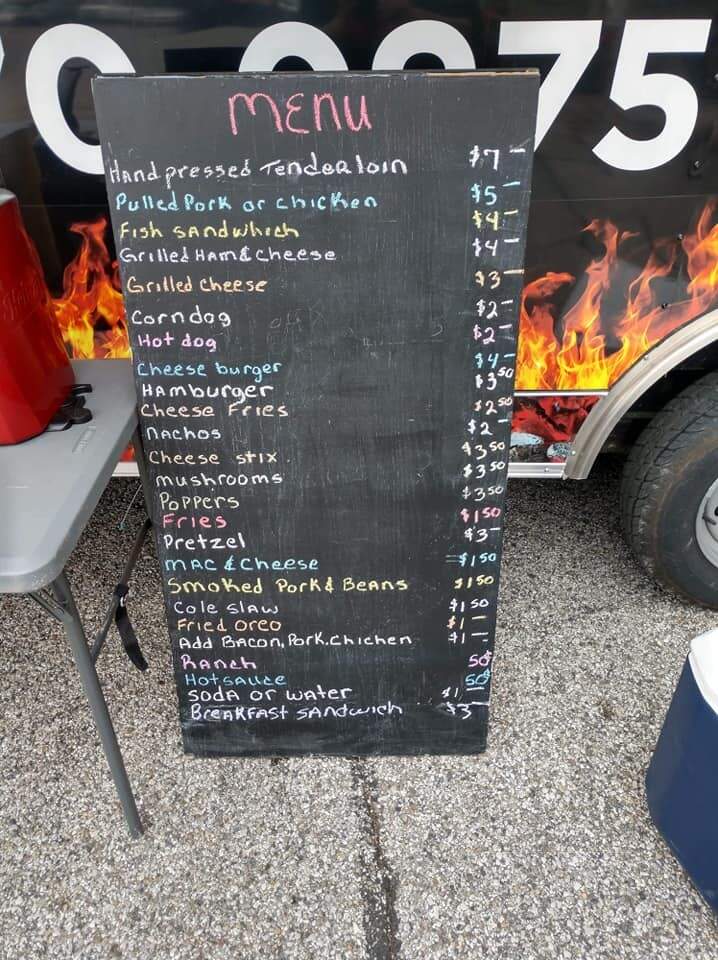 75
menu
Hand pressed Tenderloin $7-
Pulled Pork or chicken $5-
Fish sandwhich $4-
Grilled Ham & cheese $4-
Grilled cheese $3-
Corndog $2-
Hot dog $2-
Cheese burger $4-
Hamburger $3 50
Cheese Fries $2 50
nachos $2-
Cheese stix $3 50
mushrooms $3 50
Poppers $3 50
Fries $1 50
Pretzel $3-
mac & Cheese $1 50
Smoked Pork & Beans $1 50
Cole slaw $1 50
Fried oreo $1-
Add Bacon, Pork, Chicken $1-
Ranch 50¢
Hotsauce 50¢
Soda or water $1
Breakfast sandwich $3